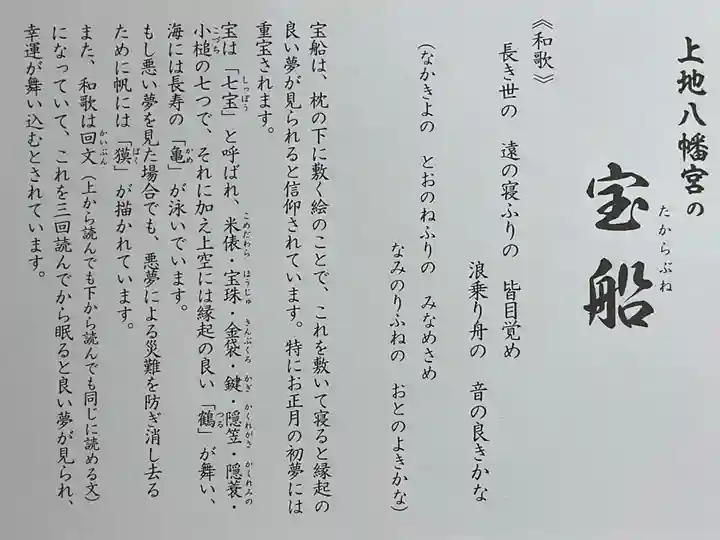 上地八幡宮の
宝船
たからぶね
《和歌》
長き世の 遠の寝ふりの 皆目覚め
浪乗り舟の 音の良きかな
(なかきよの とおのねふりの みなめさめ
なみのりふねの おとのよきかな)
宝船は、枕の下に敷く絵のことで、これを敷いて寝ると縁起の
良い夢が見られると信仰されています。特にお正月の初夢には
重宝されます。
宝は「七宝」と呼ばれ、米俵・宝珠・金袋・鍵・隠笠・隠蓑・
しっぽう こめだわら ほうじゅ きんぶくろ かぎ かくれがさ かくれみの
小槌の七つで、それに加え上空には縁起の良い「鶴」が舞い、
こづち つる
海には長寿の「亀」が泳いでいます。
かめ
もし悪い夢を見た場合でも、悪夢による災難を防ぎ消し去る
ために帆には「獏」が描かれています。
ばく
また、和歌は回文(上から読んでも下から読んでも同じに読める文)
かいぶん
になっていて、これを三回読んでから眠ると良い夢が見られ、
幸運が舞い込むとされています。